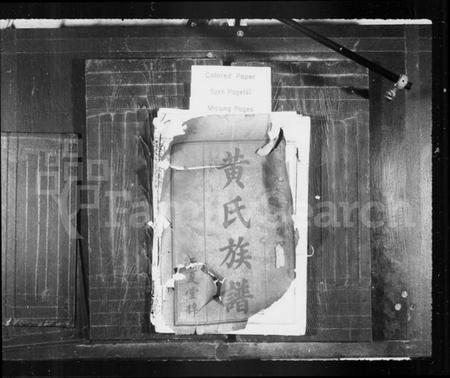 Colored Paper
Torn Page(s)
Missing Pages
黃氏族譜
FamilySearch